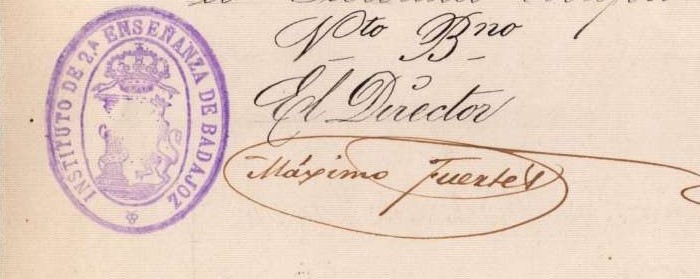 INSTITUTO DE 2.ª ENSEÑANZA DE BADAJOZ
Vto Bno
El Director
Máximo Fuertes